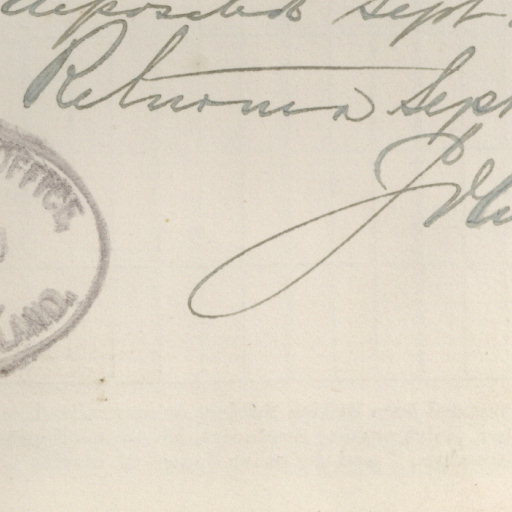 deposited Sept
Returned Sept
J
OFFICE,
LAND.